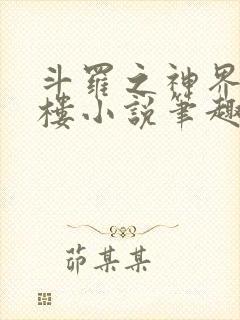 斗羅之神界
樓小說筆趣
茆某某